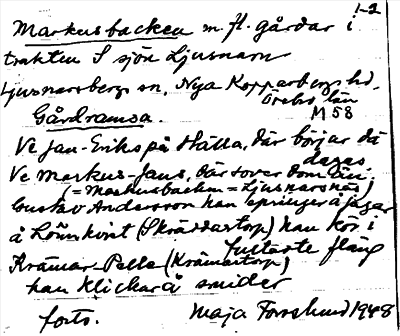 1-2
Markusbacken m.fl. gårdar i
trakten S sjön Ljusnarn
Ljusnarsbergs sn, Nya Kopparbergs hd.
Örebro län
M 58
Gårdramsa.
Ve Jan-Eriks på Hälla, där börjar då
deras
Ve Markus-Jans, där sover dom än.
(= Markusbacken = Ljusnarsnäs)
Gustav Andersson han springer å jagar
å Lönnkvist (Skräddartorp) han kör i
fullaste fläng
Krämar-Pelle (Krämartorp)
han klickar å smider
forts. Maja Forsslund 1948